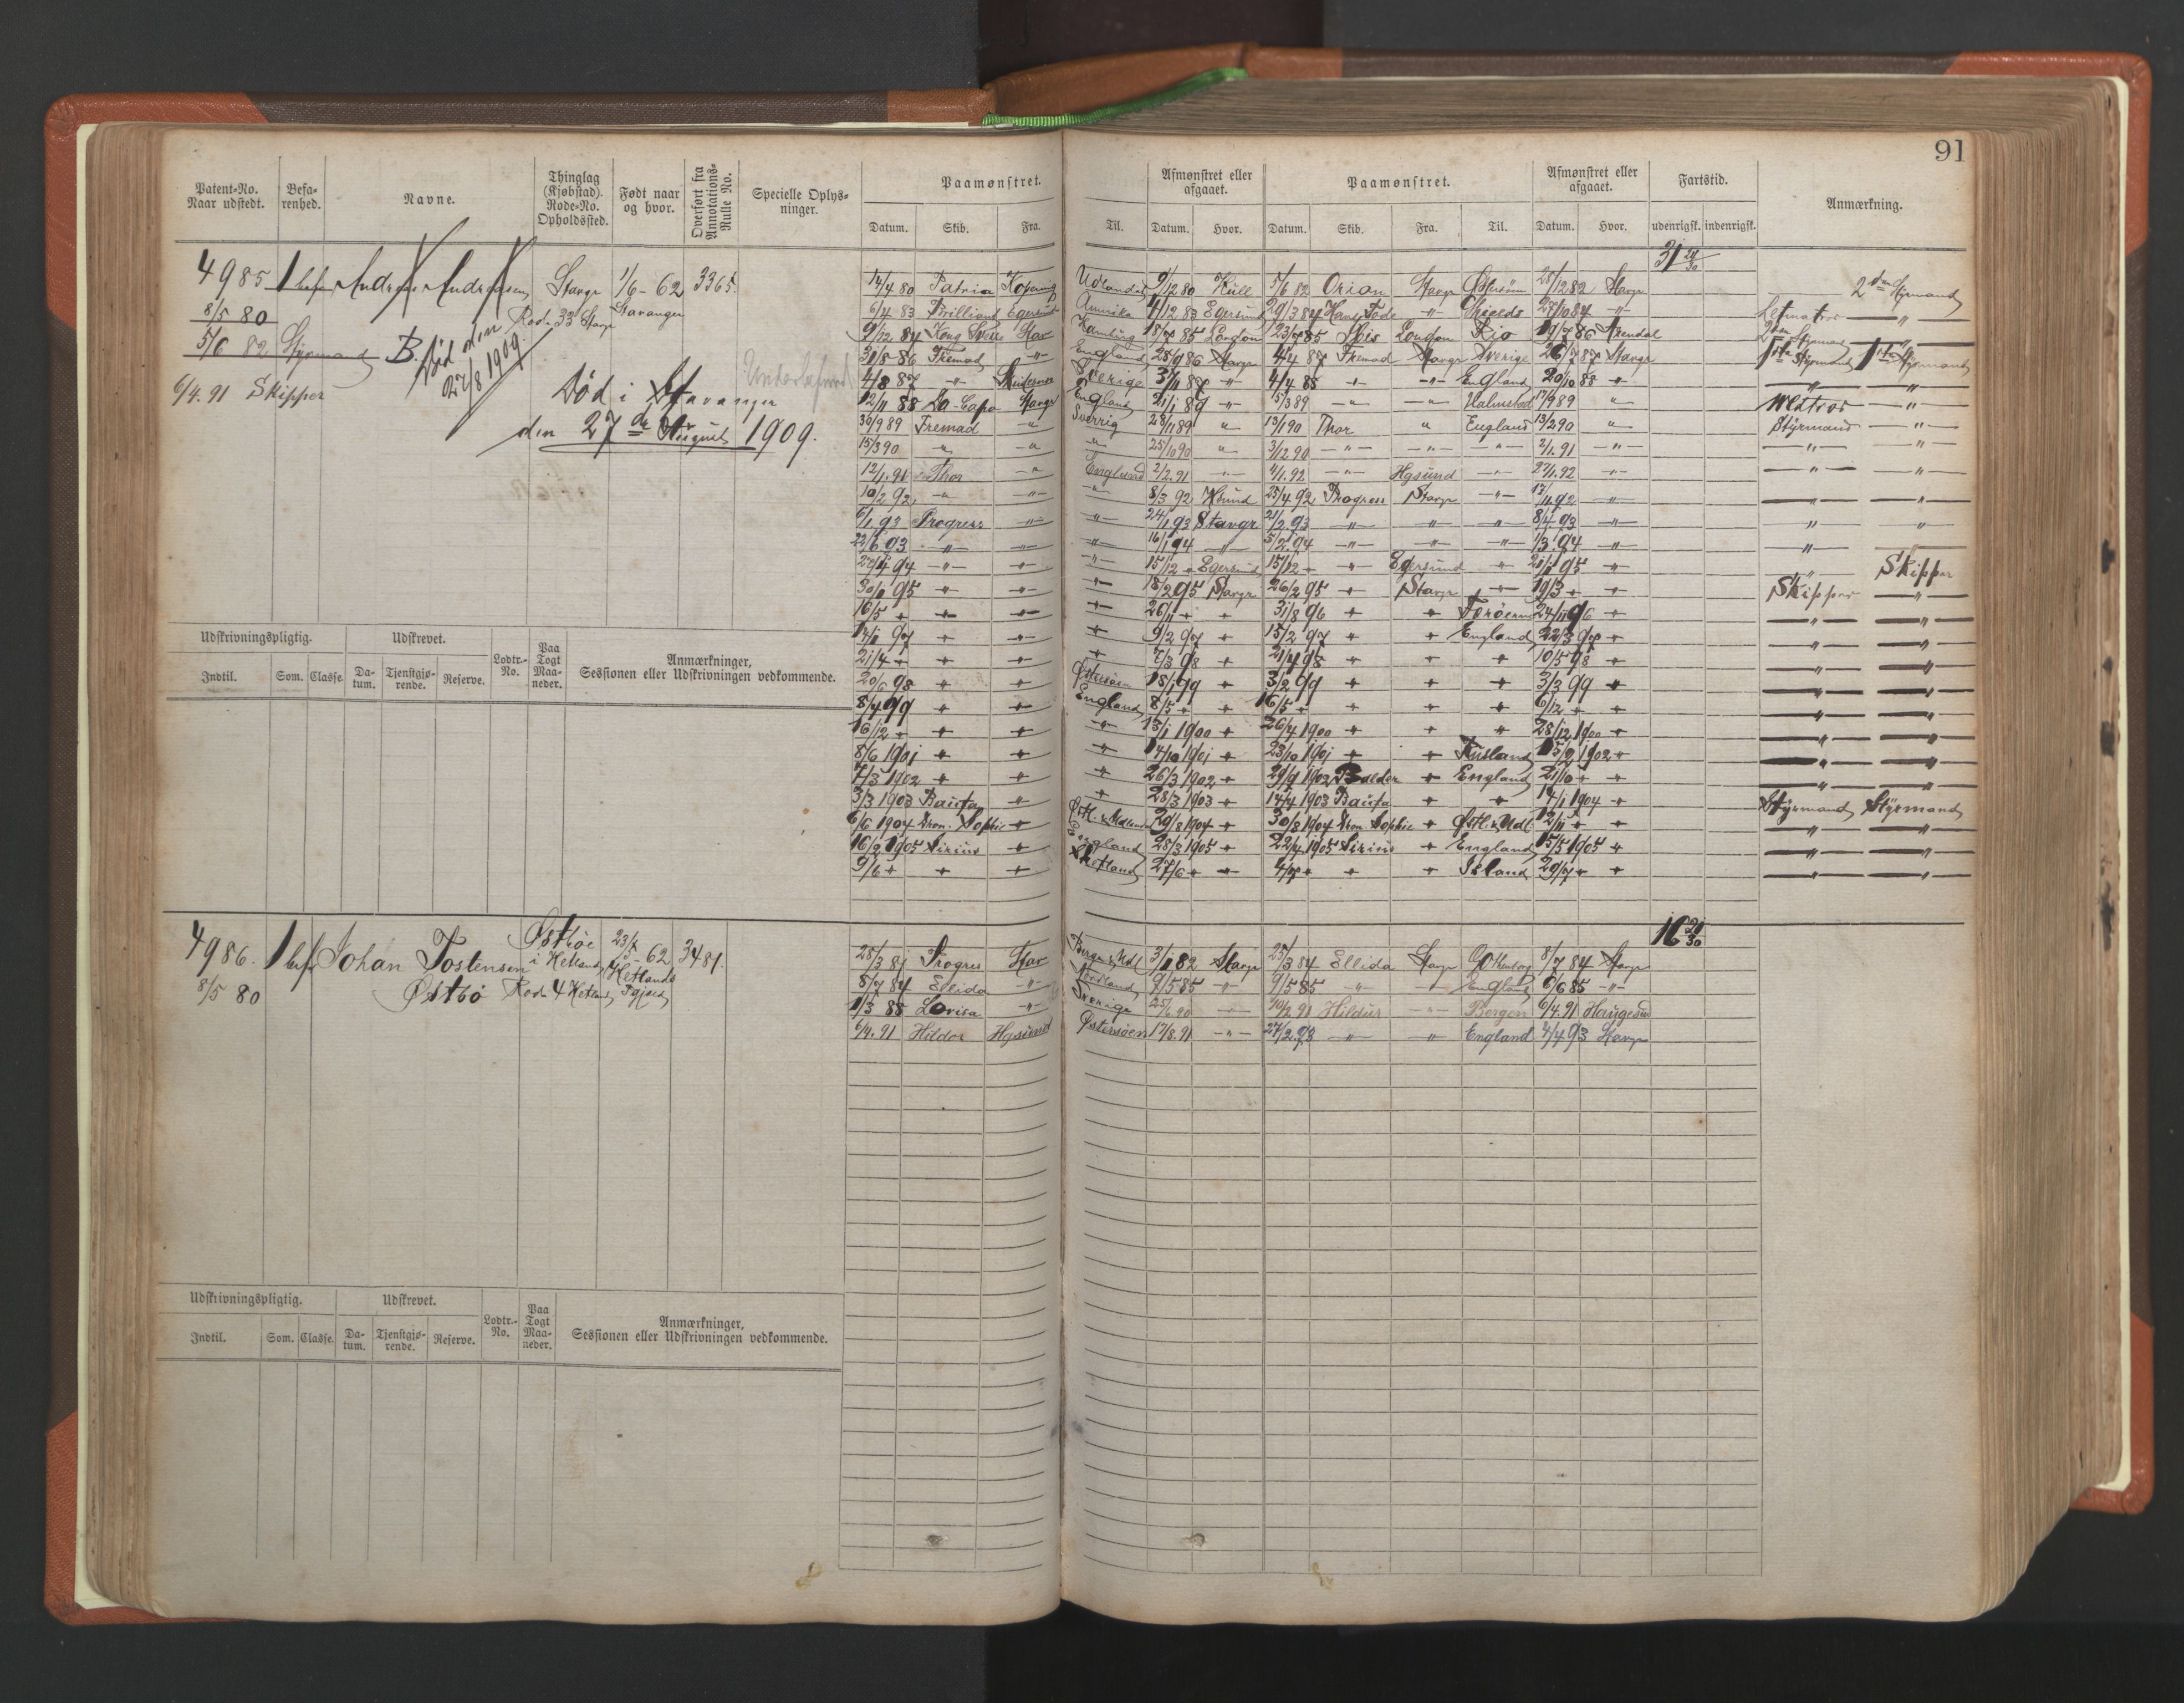 91
Patent-No. Naar udstedt. Befa-renhed. Navne. Thinglag (Kjøbstad). Rode-No. Opholdssted. Født naar og hvor. Overført fra Annotations-Rulle No. Specielle Oplys-ninger. Paamønstret. Afmønstret eller afgaaet. Paamønstret. Afmønstret eller afgaaet. Fartstid. Anmærkning.
Datum. Skib. Fra. Til. Datum. Hvor. Datum. Skib. Fra. Til. Datum. Hvor. udenrigsk. indenrigsk.
4985 1 bef Andreas Andreasen Stavgr 1/6-62 3365
8/5 80 Rode 33 Stavgr Stavanger
5/6 82 Styrmand B. Død den 27/8 1909.
6/4.91 Skipper
Død i Stavanger
den 27de August 1909.
14/4 80 Patria Udlandet 9/12 80 Hull 5/6 82 Orion Stavgr Østersøen 28/12 82 Stavgr 2den Styrmand
6/4 83 Brilliant Egersund Amerika 4/12 83 Egersund 29/3 84 Hans Tode " Shields 27/10 84 " Letmatros "
9/12 84 Kong Sverre Stav Hamburg 18/7 85 London 23/7 85 Ibis London Rio 19/7 86 Arendal 2den Styrmand "
31/8 86 Fremad " England 28/9 86 Stavgr 4/4 87 Fremad Stavgr Sverige 26/7 87 Stavgr 1ste Styrmand 1ste Styrmand
4/8 87 " Skudesnes Sverige 3/11 87 " 4/4 88 " " England 20/10 88 "
12/11 88 Da-Capo Stavgr England 21/1 89 " 15/3 89 " " Halmstad 17/9 89 " Matros "
30/9 89 Fremad " Sverrig 28/11 89 " 13/1 90 Thor " England 13/2 90 " Styrmand "
15/3 90 " " " 25/10 90 " 3/12 90 " " " 2/1.91 "
12/1.91 Thor " England 2/2.91 " 4/1.92 " Hgsund " 27/1.92 "
10/2 92 " " " 8/3 92 Hsund 25/4 92 Progress Stavgr " 17/11 92 "
6/1 93 Progress " " 24/1 93 Stavgr 21/2.93 " " " 8/4 93 "
22/6 93 " " " 16/1 94 " 5/2.94 " " " 1/3.94 "
27/4 94 " " " 15/12 " Egersund 15/12 " " Egersund " 21/1 95 " " Skipper
30/1 95 " " " 18/2 95 Stavgr 26/2 95 " Stavgr " 19/3 " " Skipper "
16/5 " " " " 26/11 " " 31/8 96 " " Færøerne 24/11 96 "
14/1 97 " " " 9/2 97 " 15/2 97 " " England 22/3 97 "
21/4 " " " " 7/3 98 " 21/4 98 " " " 10/5 98 "
20/6 98 " " Østersøen 18/1 99 " 3/2 99 " " " 3/3 99 "
8/4 99 " " England 8/5 " " 16/5 " " " " 6/12 " "
16/12 " " " " 13/1 1900 " 26/4 1900 " " " 28/12 1900 "
8/6 1901 " " " 14/10 1901 " 23/10 1901 " " Rusland 15/2 1902 "
7/3 1902 " " " 26/3 1902 " 29/9 1902 Balder " England 21/10 " "
3/3 1903 Bauta " " 28/3 1903 " 14/4 1903 Bauta " " 14/1 1904 " Styrmand Styrmand
6/6 1904 Dron. Sophie " Østl. & Udlandet 29/8 1904 " 30/8 1904 Dron Sophie " Østl. & Udl. 12/11 " "
16/2 1905 Sirius " England 28/3 1905 " 22/4 1905 Sirius " England 15/5 1905 "
9/6 " " " Shetland 27/6 " " 4/7 " " " Island 29/7 " "
Udskrivningspligtig. Udskrevet. Lodtr.-No. Paa Togt Maa-neder. Anmærkninger, Sessionen eller Udskrivningen vedkommende.
Indtil. Som. Classe. Da-tum. Tjenstgjø-rende. Reserve.
4986. 1 bef Johan Tostensen Østbø i Hetland 23/7-62 3481.
8/5 80 Østbø Rode 4 Hetland Hetlands Pgjeld
16 21/30
25/3 81 Progres Stav Bergen & Udl 3/1 82 Stavgr 25/3 84 Ellida Stavgr 8/7 84 Stavgr
8/7 84 Ellida " Nordland 9/5 85 " 9/5 85 " " England 6/6 85 "
1/3 88 Lovisa " Sverige 25/6 90 " 10/2 91 Hildur " Bergen 6/4.91 Haugesund
6/4.91 Hildor Hgsund Østersøen 17/8.91 " 27/2.93 " " England 4/4 93 Stavgr
Udskrivningspligtig. Udskrevet. Lodtr.-No. Paa Togt Maa-neder. Anmærkninger, Sessionen eller Udskrivningen vedkommende.
Indtil. Som. Classe. Da-tum. Tjenstgjø-rende. Reserve.